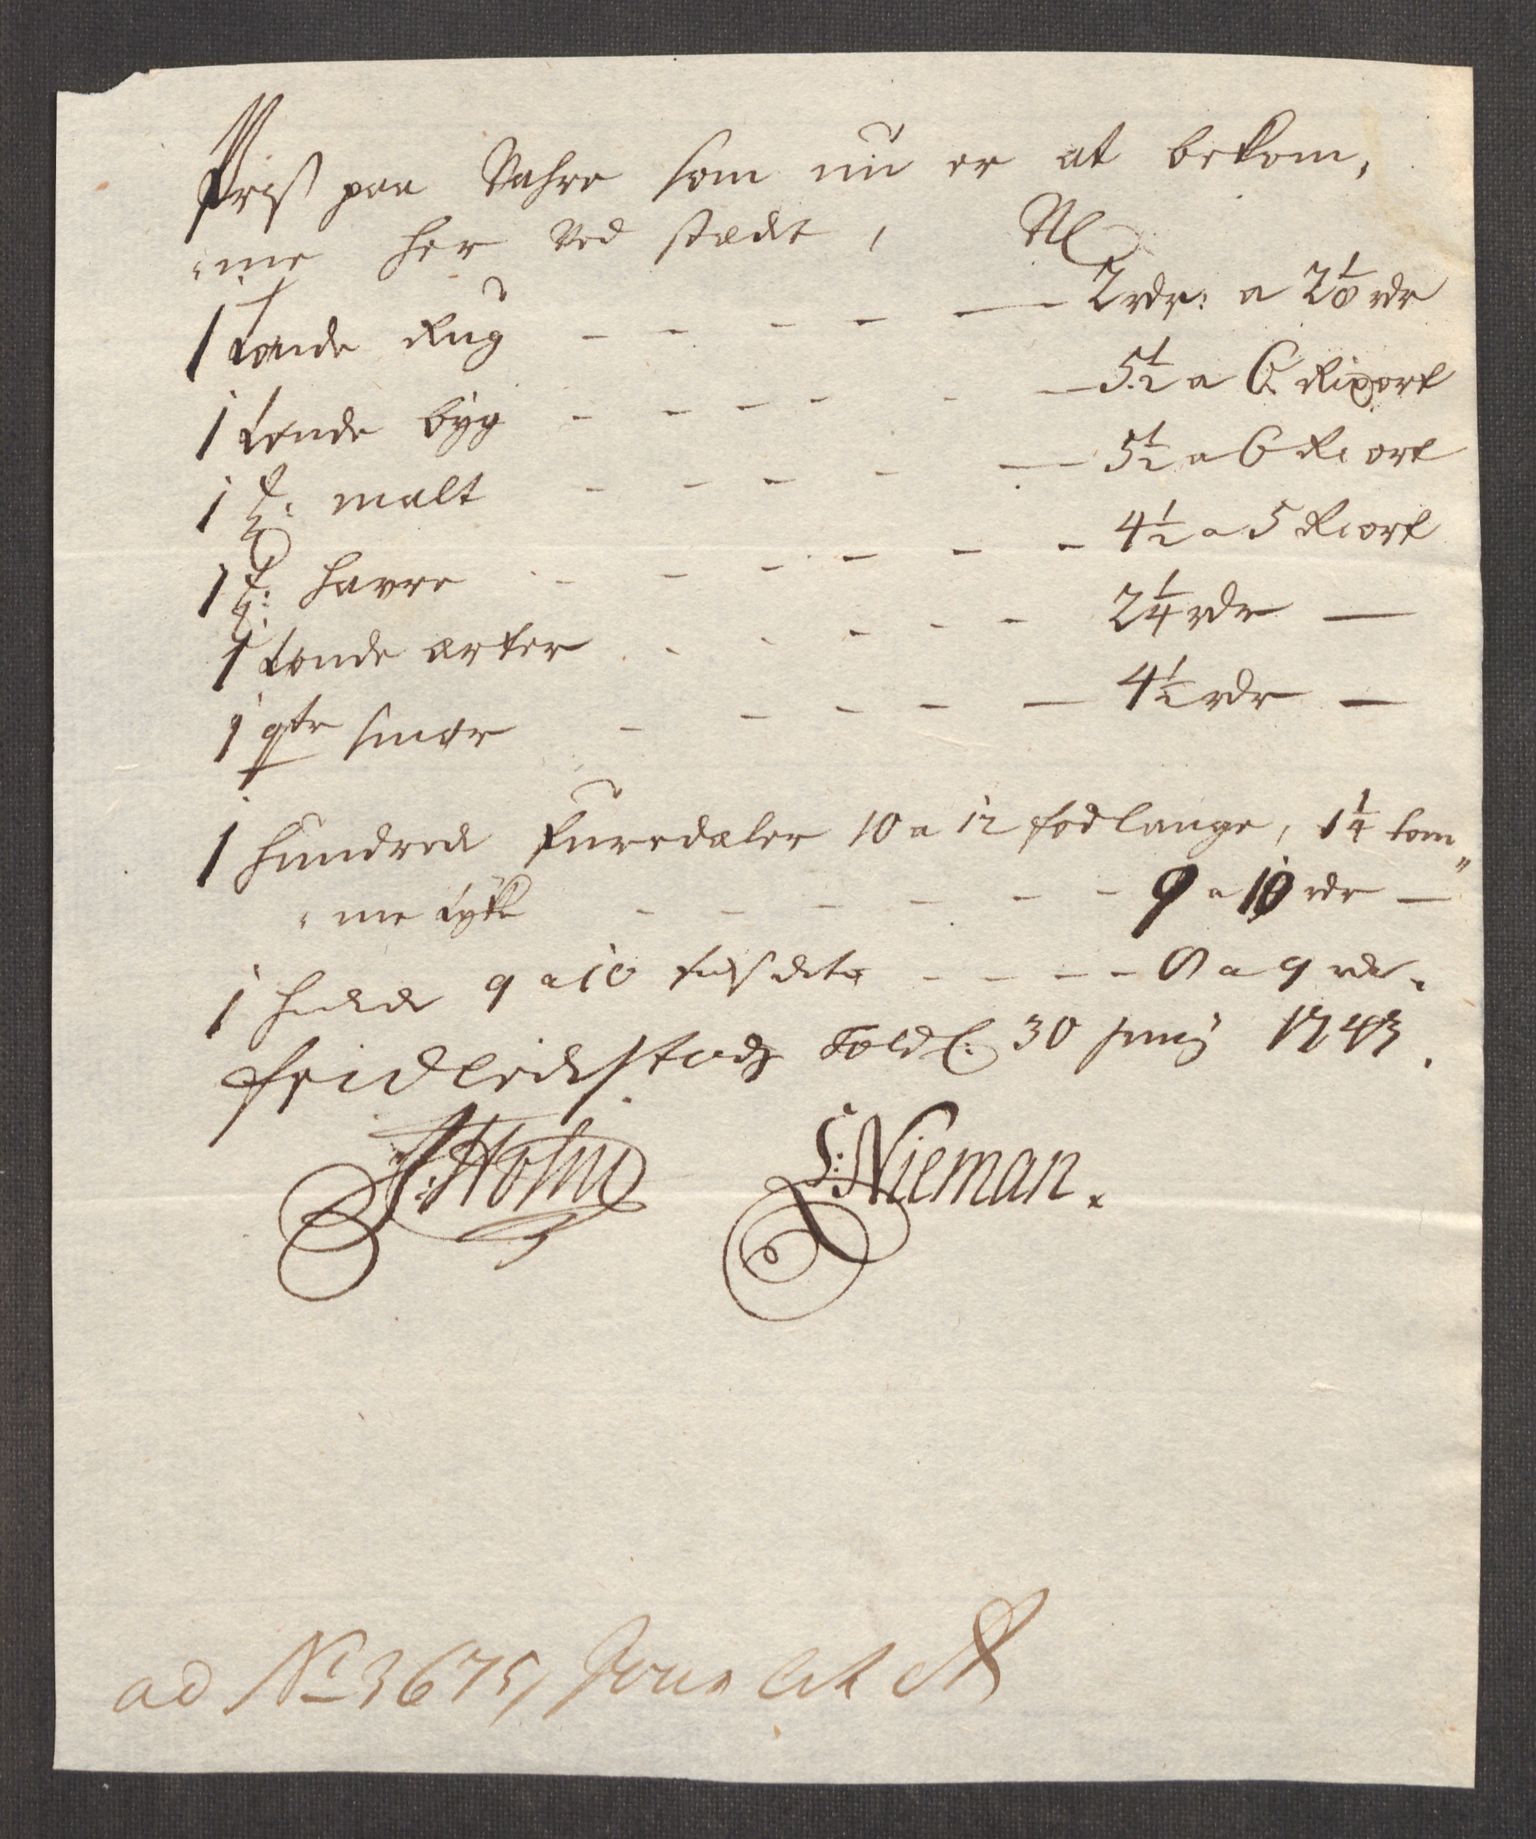 Priß paa Vahre som nu er at bekom,
,me her ved stædet, Nl
1 tønde Rug - - - - - 2 rdr: a 2 1/8 rdr
1 tønde byg - - - - - 5 1/2 a 6 Rixort
1 t: malt - - - - - 5 1/2 a 6 Rort
1 t: havre - - - - - 4 1/2 a 5 Rort
1 tønde erter - - - - - 2 1/4 rdr -
1 qtr smør - - - - - 4 1/2 rdr -
1 hundrede furedæler 10 a 12 fod lange, 1 1/4 tom"
"me tyke - - - - - - 9 a 10 rdr -
1 9 a 10 fods dito - - - - 8 a 9 rdr.
fridrichstads Told C: 30 Junij 1743.
Holm L: Nieman.
ad No 3675, Jour Lit A